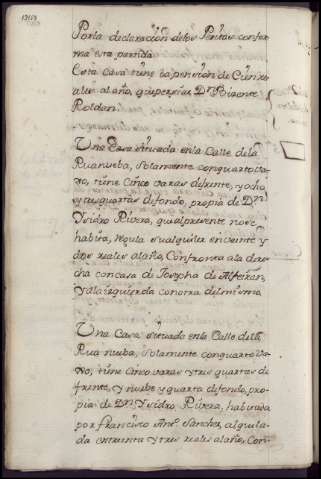 Por la declarazion delos Peritos confor
ma esta partida
Esta Casa tiene la pension de Cien rre
ales al año, que persive Dn. Vizente
Roldan.
Una Casa situada en la Calle dela
Rua nueba, solamente con quarto va
xo, tiene Cinco varas de frente, y ocho
y tres quartas de fondo, propia de Dn.
Ysidro Rivera, que al presente no se
habita, regula su alquiler en veinte y
dos reales al año, Confronta ala dere
cha con casa de Josepha de Alfeiran,
y ala izquierda con otra del mismo
Una Casa situada en la Calle dela
Rua nueba, solamente con quarto va
xo, tiene cinco varas y tres quartas de
frente, y nuebe y quarta de fondo, pro
pia de Dn. Ysidro Rivera, habitada
por francisco Anto. Sanchez, alquila
da en treinta y tres reales al año, Con